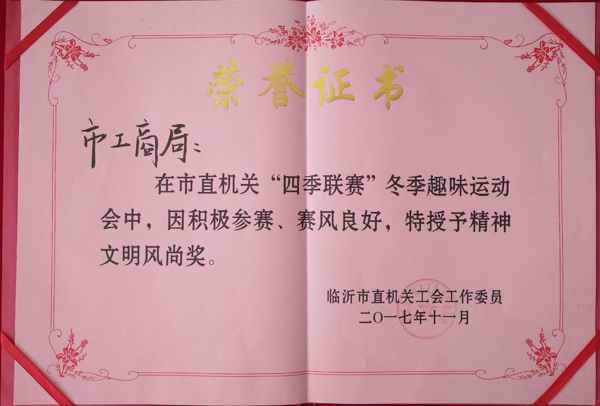 荣誉证书
市工商局:
在市直机关“四季联赛”冬季趣味运动
会中，因积极参赛、赛风良好，特授予精神
文明风尚奖。
临沂市直机关工会工作委员
二〇一七年十一月